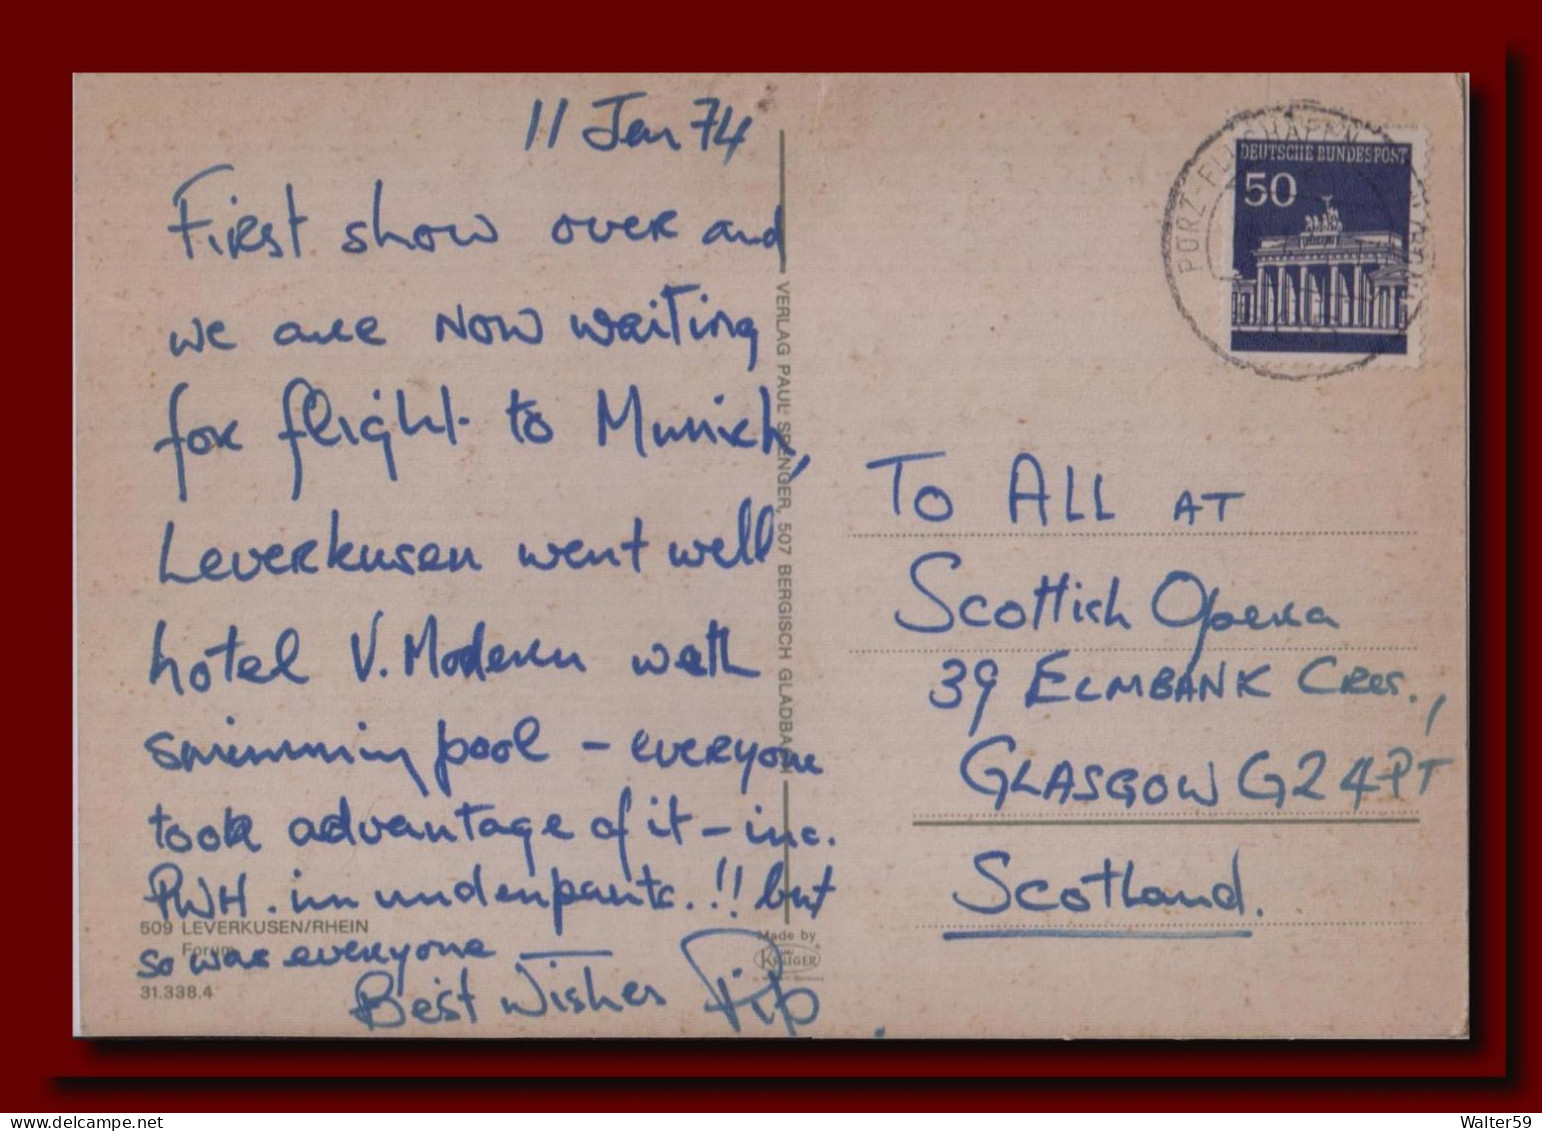 11 Jan 74
First show over and
we are now waiting
for flight to Munich,
Leverkusen went well
hotel V. Modern with
swimming pool – everyone
took advantage of it – inc.
PWH. in underpants.!! but
so was everyone
Best Wishes Pip
509 LEVERKUSEN/RHEIN
Forum
31.338.4
VERLAG PAUL SPENGER, 507 BERGISCH GLADBACH
Made by
KRÜGER
DEUTSCHE BUNDESPOST
50
To ALL AT
Scottish Opera
39 ELMBANK Cres.,
GLASGOW G2 4PT
Scotland.
Walter59